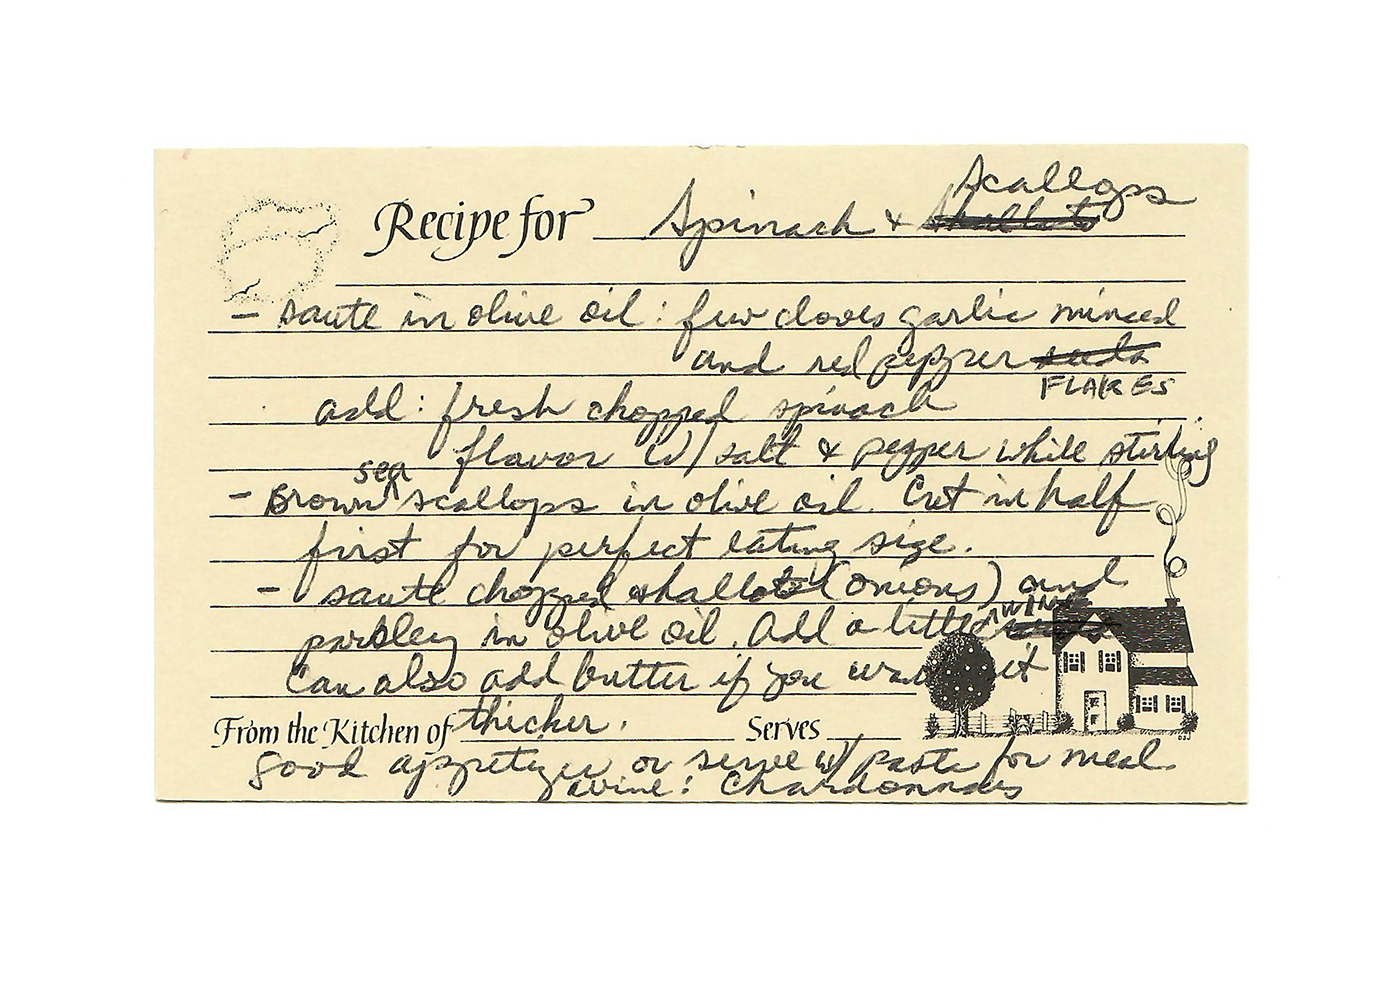 Recipe for Spinach & Scallops
- saute in olive oil: few cloves garlic minced
and red pepper
FLAKES
add: fresh chopped spinach
flavor w/ salt & pepper while stirling
- Brown sea scallops in olive oil. Cut in half
first for perfect eating size.
- saute chopped shallots (onions) and
parsley in olive oil. Add a little wine
Can also add butter if you want it
From the Kitchen of thicker. Serves
Good appetizer or serve w/ pasta for meal.
wine: Chardonnay
DSJ